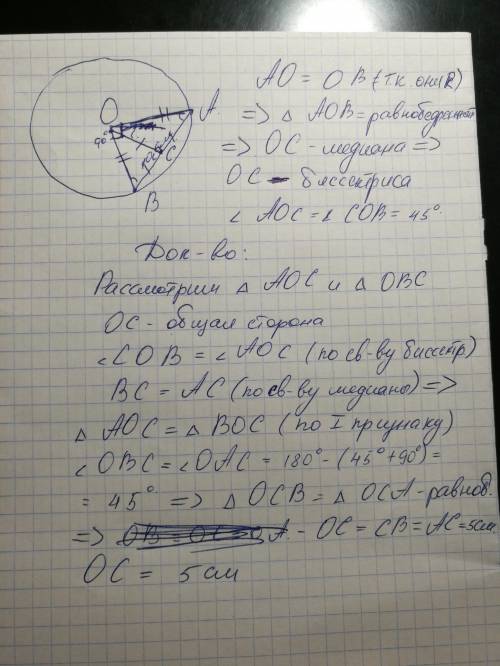 O
A
90°
C
B
AO = OB (т.к. они R)
=> △ AOB = равнобедренный
=> OC - медиана =>
OC - биссектриса
∠ AOC = ∠ COB = 45°.
Док-во:
Рассмотрим △ AOC и △ OBC
OC - общая сторона
∠COB = ∠AOC (по св-ву биссектр)
BC = AC (по св-ву медианы) =>
△ AOC = △ BOC (по I признаку)
∠ OBC = ∠OAC = 180° - (45° + 90°) =
= 45° => △ OCB = △ OCA - равноб.
=> - OC = CB = AC = 5см
OC = 5 см